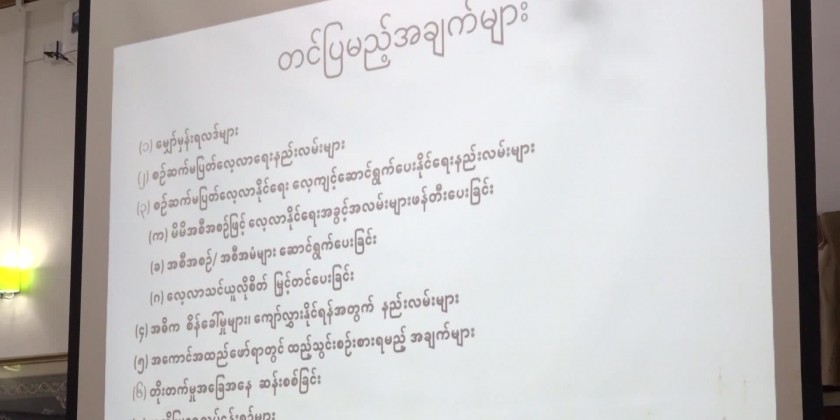 တင်ပြမည့်အချက်များ
(၁) မျှော်မှန်းရလဒ်များ
(၂) စဉ်ဆက်မပြတ်လေ့လာရေးနည်းလမ်းများ
(၃) စဉ်ဆက်မပြတ်လေ့လာနိုင်ရေး လေ့ကျင့်ဆောင်ရွက်ပေးနိုင်ရေးနည်းလမ်းများ
(က) မိမိအစီအစဉ်ဖြင့် လေ့လာနိုင်ရေးအခွင့်အလမ်းများဖန်တီးပေးခြင်း
(ခ) အစီအစဉ်/ အစီအမံများ ဆောင်ရွက်ပေးခြင်း
(ဂ) လေ့လာသင်ယူလိုစိတ် မြှင့်တင်ပေးခြင်း
(၄) အဓိက စိန်ခေါ်မှုများ၊ ကျော်လွှားနိုင်ရန်အတွက် နည်းလမ်းများ
(၅) အကောင်အထည်ဖော်ရာတွင် ထည့်သွင်းစဉ်းစားရမည့် အချက်များ
(၆) တိုးတက်မှုအခြေအနေ ဆန်းစစ်ခြင်း